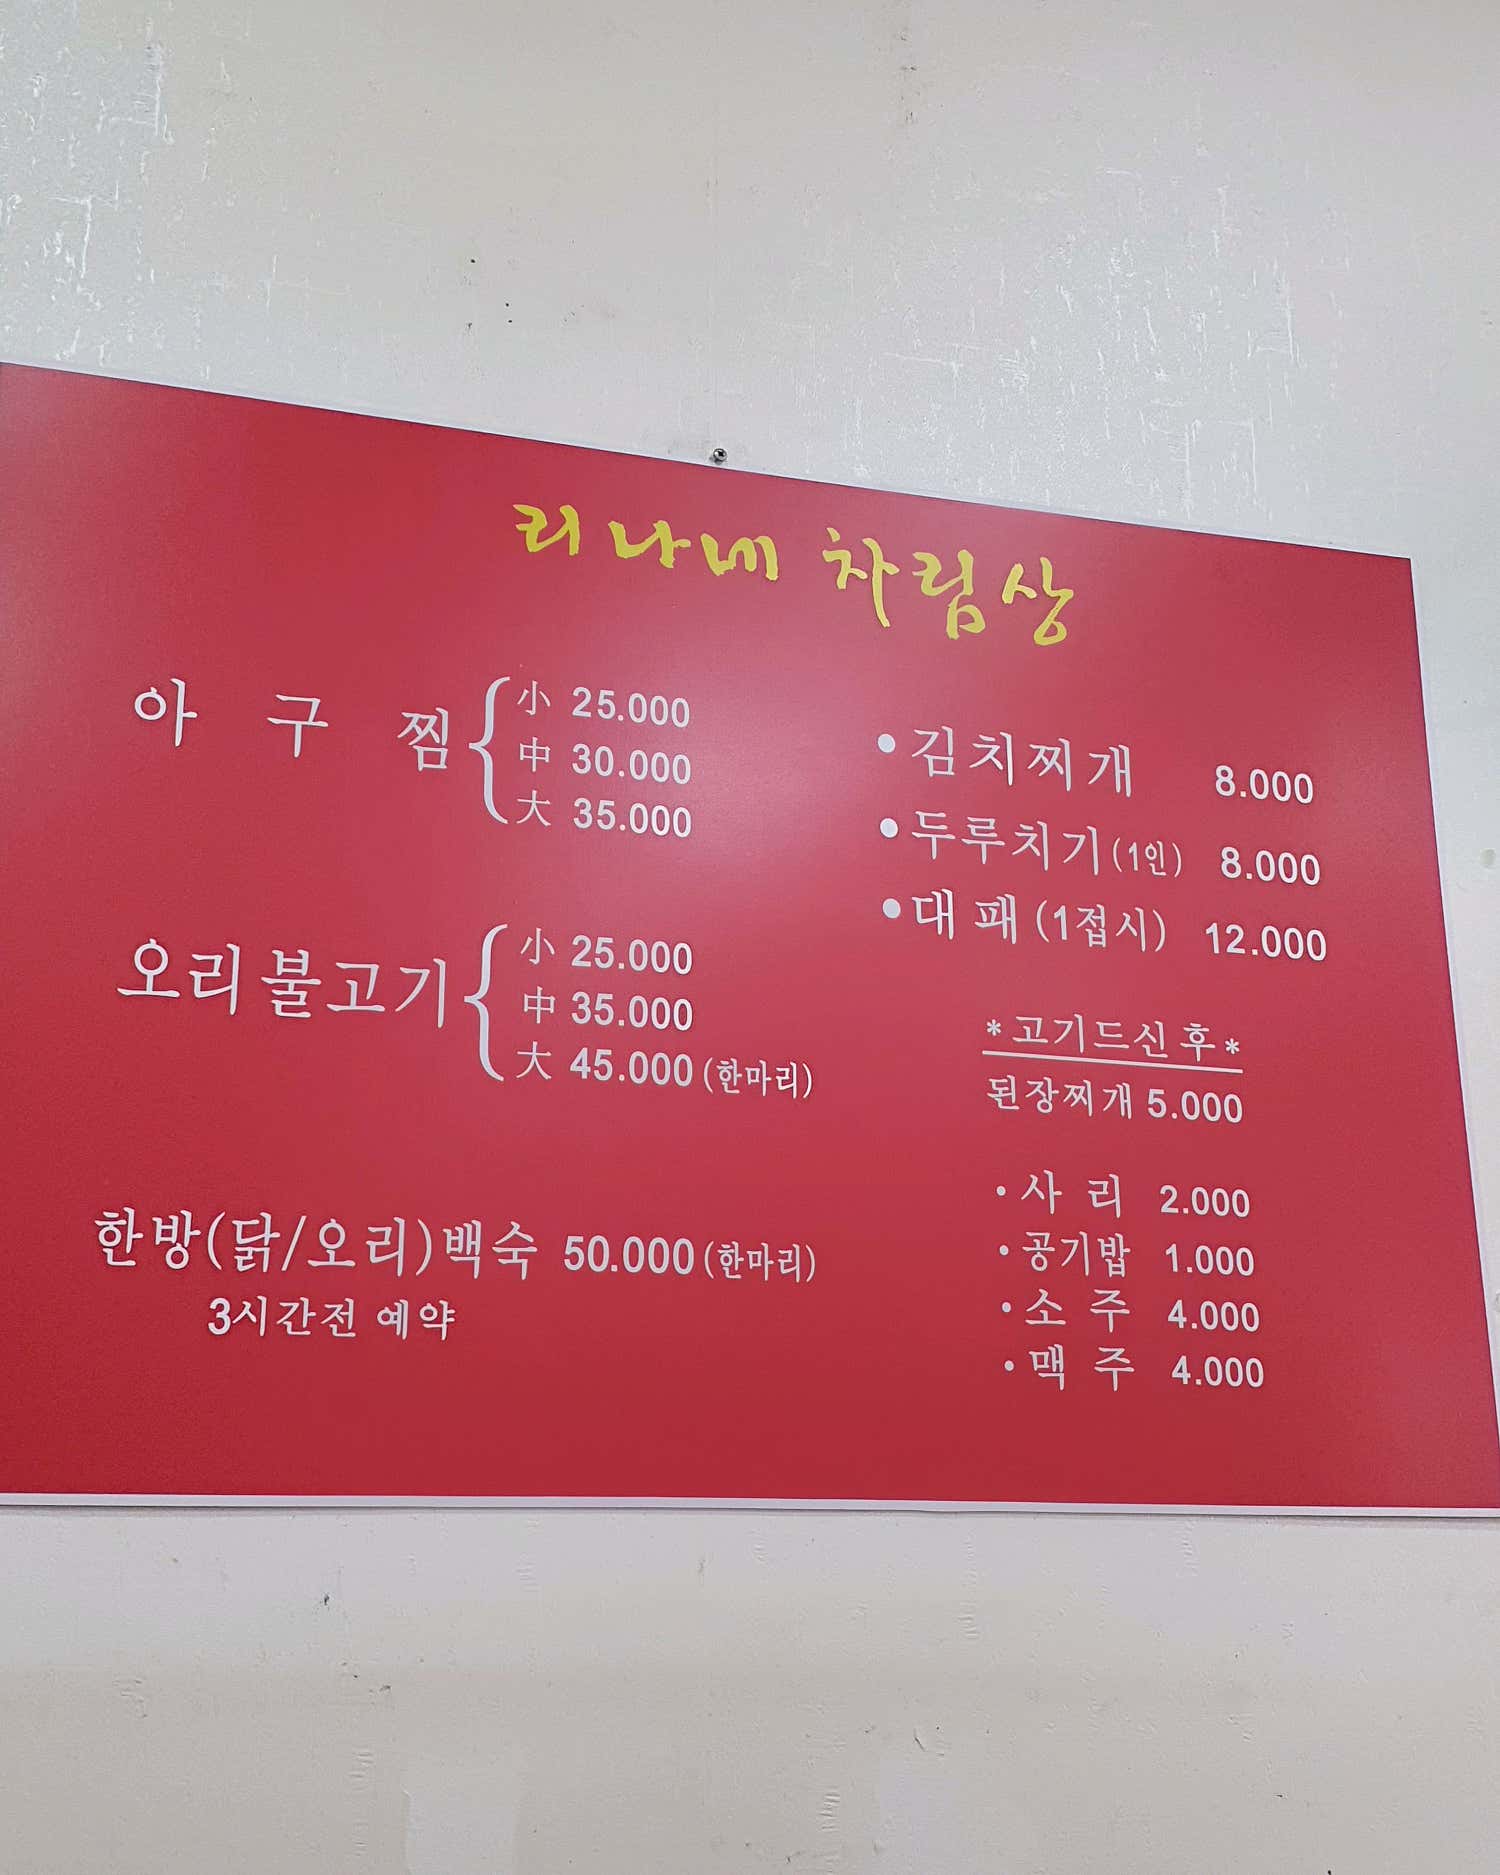 리나네 차림상
아 구 찜
小 25.000
中 30.000
大 35.000
오리불고기
小 25.000
中 35.000
大 45.000 (한마리)
한방(닭/오리)백숙 50.000 (한마리)
3시간전 예약
•김치찌개 8.000
•두루치기(1인) 8.000
•대패(1접시) 12.000
*고기드신후*
된장찌개 5.000
•사 리 2.000
•공기밥 1.000
•소 주 4.000
•맥 주 4.000